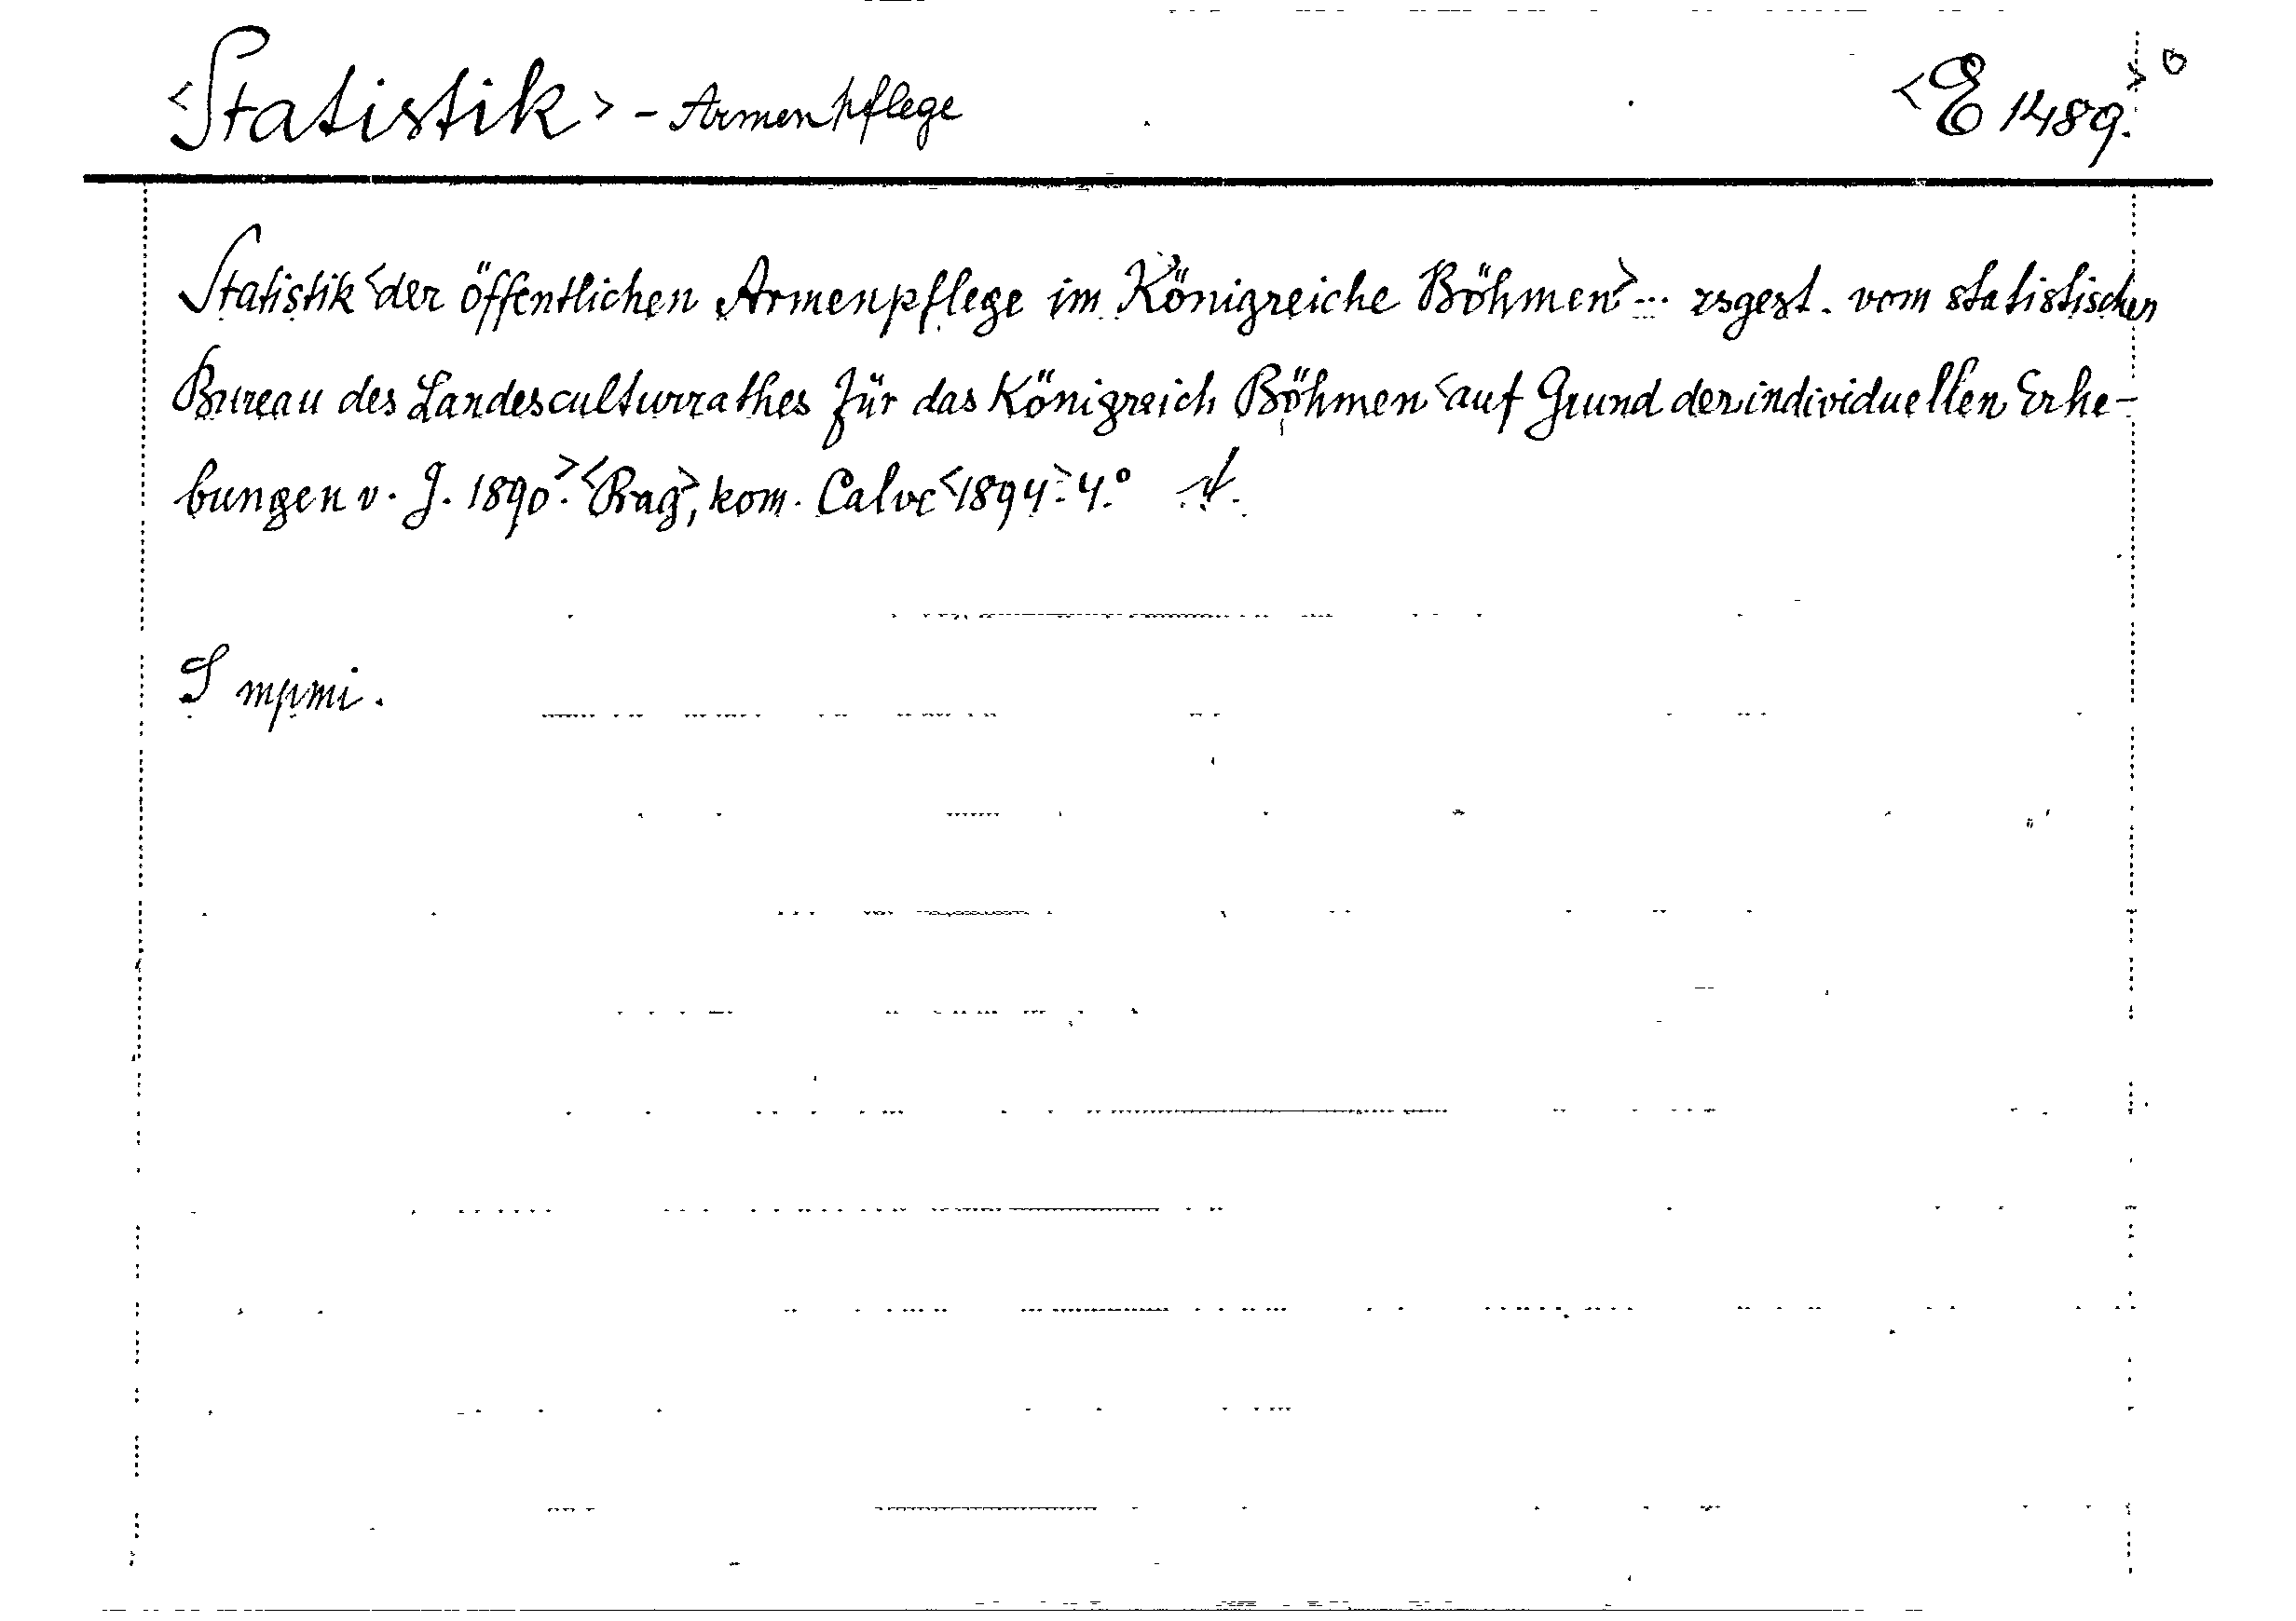 <Statistik> - Armenpflege <E 1489.>
Statistik <der öffentlichen Armenpflege im Königreiche Böhmen> ... zsgest. vom statistischen
Bureau des Landesculturrathes für das Königreich Böhmen <auf Grund der individuellen Erhe-
bungen v. J. 1890.> <Prag>, kom. Calve <1894.> 4.°
S mpmi.